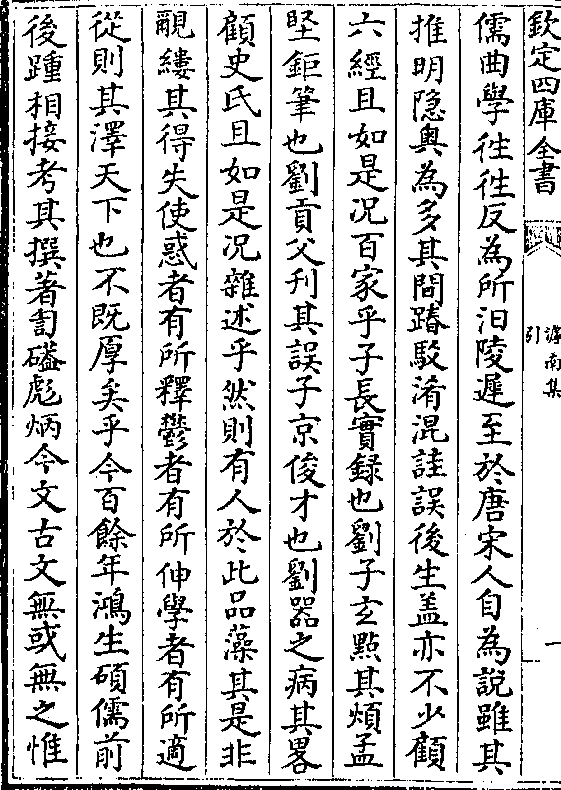 欽定四庫全書
滹南集
引
一
儒曲學徃徃反為所汩陵遲至於唐宋人自為說雖其
推明隐奥為多其間踳駁淆混詿誤後生盖亦不少顧
六經且如是况百家乎子長實録也劉子玄㸃其煩孟
堅鉅筆也劉貢父刋其誤子京俊才也劉器之病其畧
顧史氏且如是况雜述乎然則有人於此品藻其是非
覼縷其得失使惑者有所釋鬱者有所伸學者有所適
從則其澤天下也不既厚矣乎今百餘年鴻生碩儒前
後踵相接考其撰著訇磕彪炳今文古文無或無之惟